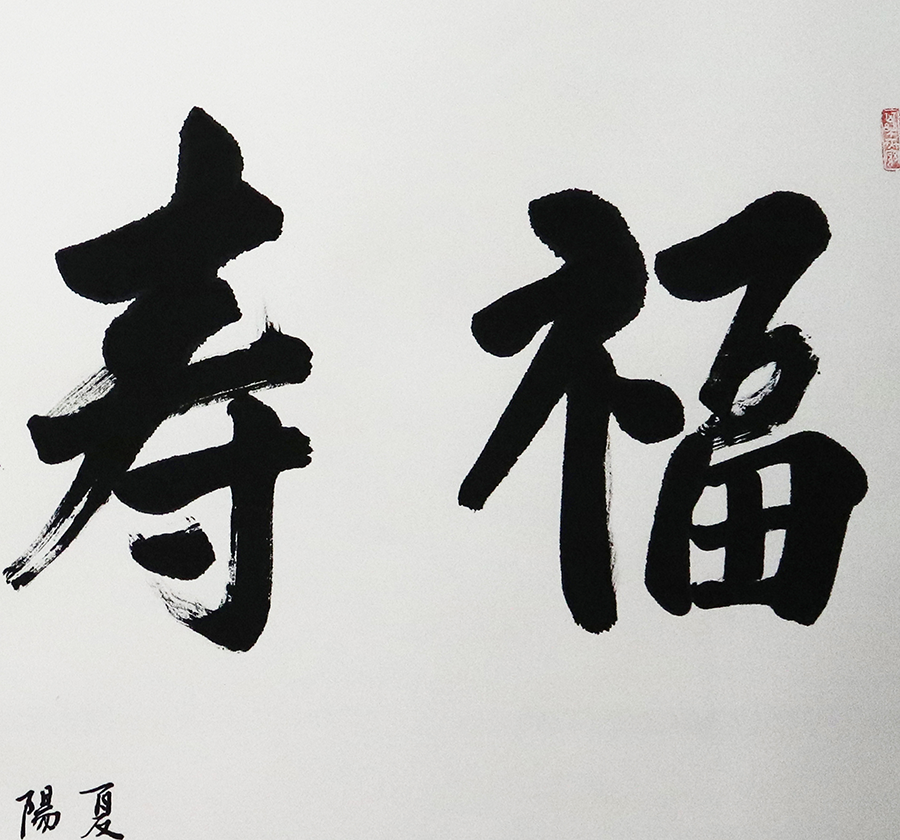 福寿
夏陽